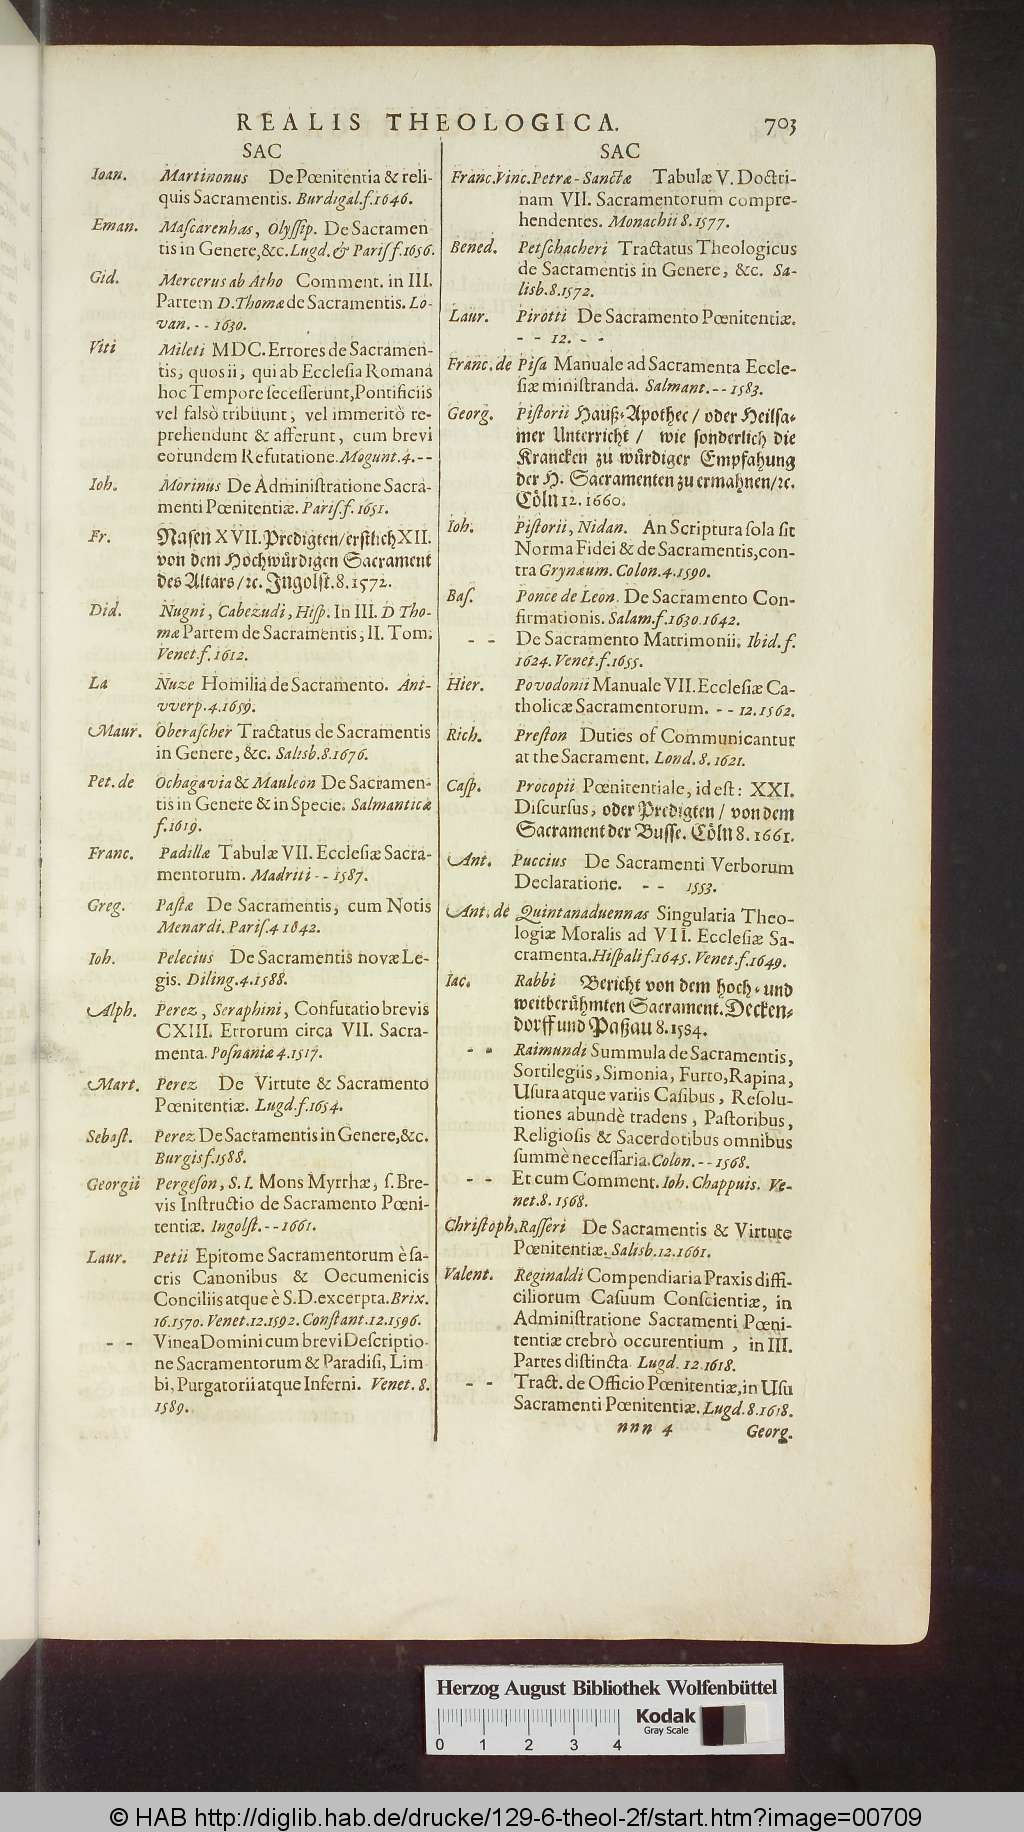 REALIS THEOLOGICA. 703
SAC
Ioan. Martinonus De Pœnitentia & reli-
quis Sacramentis. Burdigal. f. 1646.
Eman. Maſcarenhas, Olyſſip. De Sacramen
tis in Genere, &c. Lugd. & Pariſ f. 1656.
Gid. Mercerus ab Atho Comment. in III.
Partem D. Thomæ de Sacramentis. Lo-
van. - - 1630.
Viti Mileti MDC. Errores de Sacramen-
tis, quos ii, qui ab Eccleſia Romana
hoc Tempore ſeceſſerunt, Pontificiis
vel falsò tribuunt, vel immeritò re-
prehendunt & afferunt, cum brevi
eorundem Refutatione. Mogunt. 4. - -
Ioh. Morinus De Adminiſtratione Sacra-
menti Pœnitentiæ. Pariſ. f. 1651.
Fr. Naſen XVII. Predigten / erſtlich XII.
von dem Hochwürdigen Sacrament
des Altars / ꝛc. Jngolſt. 8. 1572.
Did. Nugni, Cabezudi, Hiſp. In III. D Tho-
mæ Partem de Sacramentis, II. Tom.
Venet. f. 1612.
La Nuze Homilia de Sacramento. Ant-
vverp. 4. 1659.
Maur. Oberaſcher Tractatus de Sacramentis
in Genere, &c. Salisb. 8. 1676.
Pet. de Ochagavia & Mauleon De Sacramen-
tis in Genere & in Specie. Salmanticæ
f. 1619.
Franc. Padillæ Tabulæ VII. Eccleſiæ Sacra-
mentorum. Madriti - - 1587.
Greg. Paſtæ De Sacramentis, cum Notis
Menardi. Pariſ. 4 1642.
Ioh. Pelecius De Sacramentis novæ Le-
gis. Diling. 4. 1588.
Alph. Perez, Seraphini, Confutatio brevis
CXIII. Errorum circa VII. Sacra-
menta. Poſnaniæ 4. 1517.
Mart. Perez De Virtute & Sacramento
Pœnitentiæ. Lugd. f. 1654.
Sebaſt. Perez De Sacramentis in Genere, &c.
Burgis f. 1588.
Georgii Pergeſon, S. I. Mons Myrrhæ, ſ. Bre-
vis Inſtructio de Sacramento Pœni-
tentiæ. Ingolſt. - - 1661.
Laur. Petii Epitome Sacramentorum è ſa-
cris Canonibus & Oecumenicis
Conciliis atque è S. D. excerpta. Brix.
16. 1570. Venet. 12. 1592. Conſtant. 12. 1596.
- - Vinea Domini cum brevi Deſcriptio-
ne Sacramentorum & Paradiſi, Lim
bi, Purgatorii atque Inferni. Venet. 8.
1589.
SAC
Franc. Vinc. Petræ-Sanctæ Tabulæ V. Doctri-
nam VII. Sacramentorum compre-
hendentes. Monachii 8. 1577.
Bened. Petſchacheri Tractatus Theologicus
de Sacramentis in Genere, &c. Sa-
lisb. 8. 1572.
Laur. Pirotti De Sacramento Pœnitentiæ.
- - 12. - -
Franc. de Piſa Manuale ad Sacramenta Eccle-
ſiæ miniſtranda. Salmant. - - 1583.
Georg. Piſtorii Hauß-Apothec / oder Heilſa-
mer Unterricht / wie ſonderlich die
Krancken zu würdiger Empfahung
der H. Sacramenten zu ermahnen / ꝛc.
Cöln 12. 1660.
Ioh. Piſtorii, Nidan. An Scriptura ſola ſit
Norma Fidei & de Sacramentis, con-
tra Grynæum. Colon. 4. 1590.
Baſ. Ponce de Leon. De Sacramento Con-
firmationis. Salam. f. 1630. 1642.
- - De Sacramento Matrimonii. Ibid. f.
1624. Venet. f. 1655.
Hier. Povodonii Manuale VII. Eccleſiæ Ca-
tholicæ Sacramentorum. - - 12. 1562.
Rich. Preſton Duties of Communicantur
at the Sacrament. Lond. 8. 1621.
Caſp. Procopii Pœnitentiale, id eſt: XXI.
Diſcurſus, oder Predigten / von dem
Sacrament der Buſſe. Cöln 8. 1661.
Ant. Puccius De Sacramenti Verborum
Declaratione. - - 1553.
Ant. de Quintanaduennas Singularia Theo-
logiæ Moralis ad VII. Eccleſiæ Sa-
cramenta. Hiſpali f. 1645. Venet. f. 1649.
Iac. Rabbi Bericht von dem hoch- und
weitberühmten Sacrament. Decken-
dorff und Paßau 8. 1584.
- - Raimundi Summula de Sacramentis,
Sortilegiis, Simonia, Furto, Rapina,
Uſura atque variis Caſibus, Reſolu-
tiones abundè tradens, Paſtoribus,
Religioſis & Sacerdotibus omnibus
ſummè neceſſaria. Colon. - - 1568.
- - Et cum Comment. Ioh. Chappuis. Ve-
net. 8. 1568.
Chriſtoph. Raſſeri De Sacramentis & Virtute
Pœnitentiæ. Salisb. 12. 1661.
Valent. Reginaldi Compendiaria Praxis diffi-
ciliorum Caſuum Conſcientiæ, in
Adminiſtratione Sacramenti Pœni-
tentiæ crebrò occurentium, in III.
Partes diſtincta. Lugd. 12. 1618.
- - Tract. de Officio Pœnitentiæ, in Uſu
Sacramenti Pœnitentiæ. Lugd. 8. 1618.
nnn 4 Georg.
Herzog August Bibliothek Wolfenbüttel
Kodak
Gray Scale
0 1 2 3 4
© HAB http://diglib.hab.de/drucke/129-6-theol-2f/start.htm?image=00709